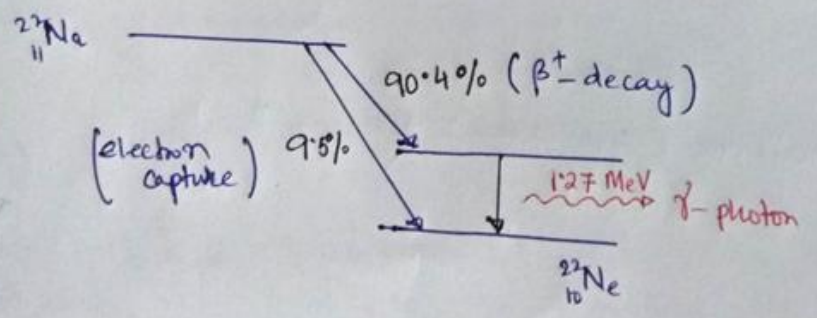 ²²₁₁Na
90.4% (β⁺-decay)
(electron capture) 9.5%
1.27 MeV
γ-photon
²²₁₀Ne